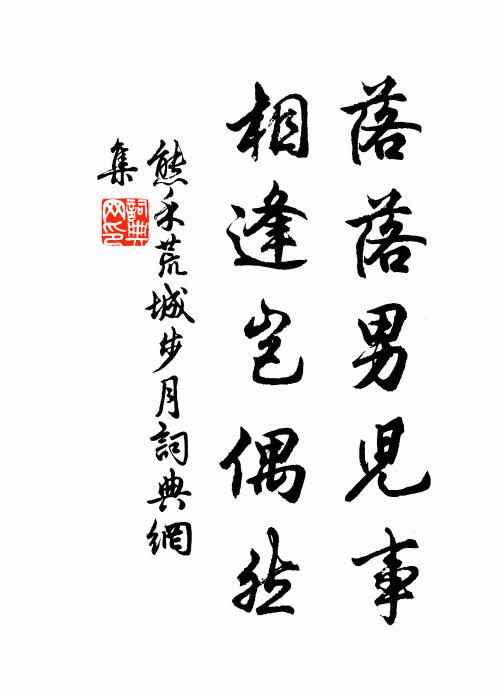 落落男児事
相逢豈偶然
熊禾荒城步月詞典網
集
詞典网印